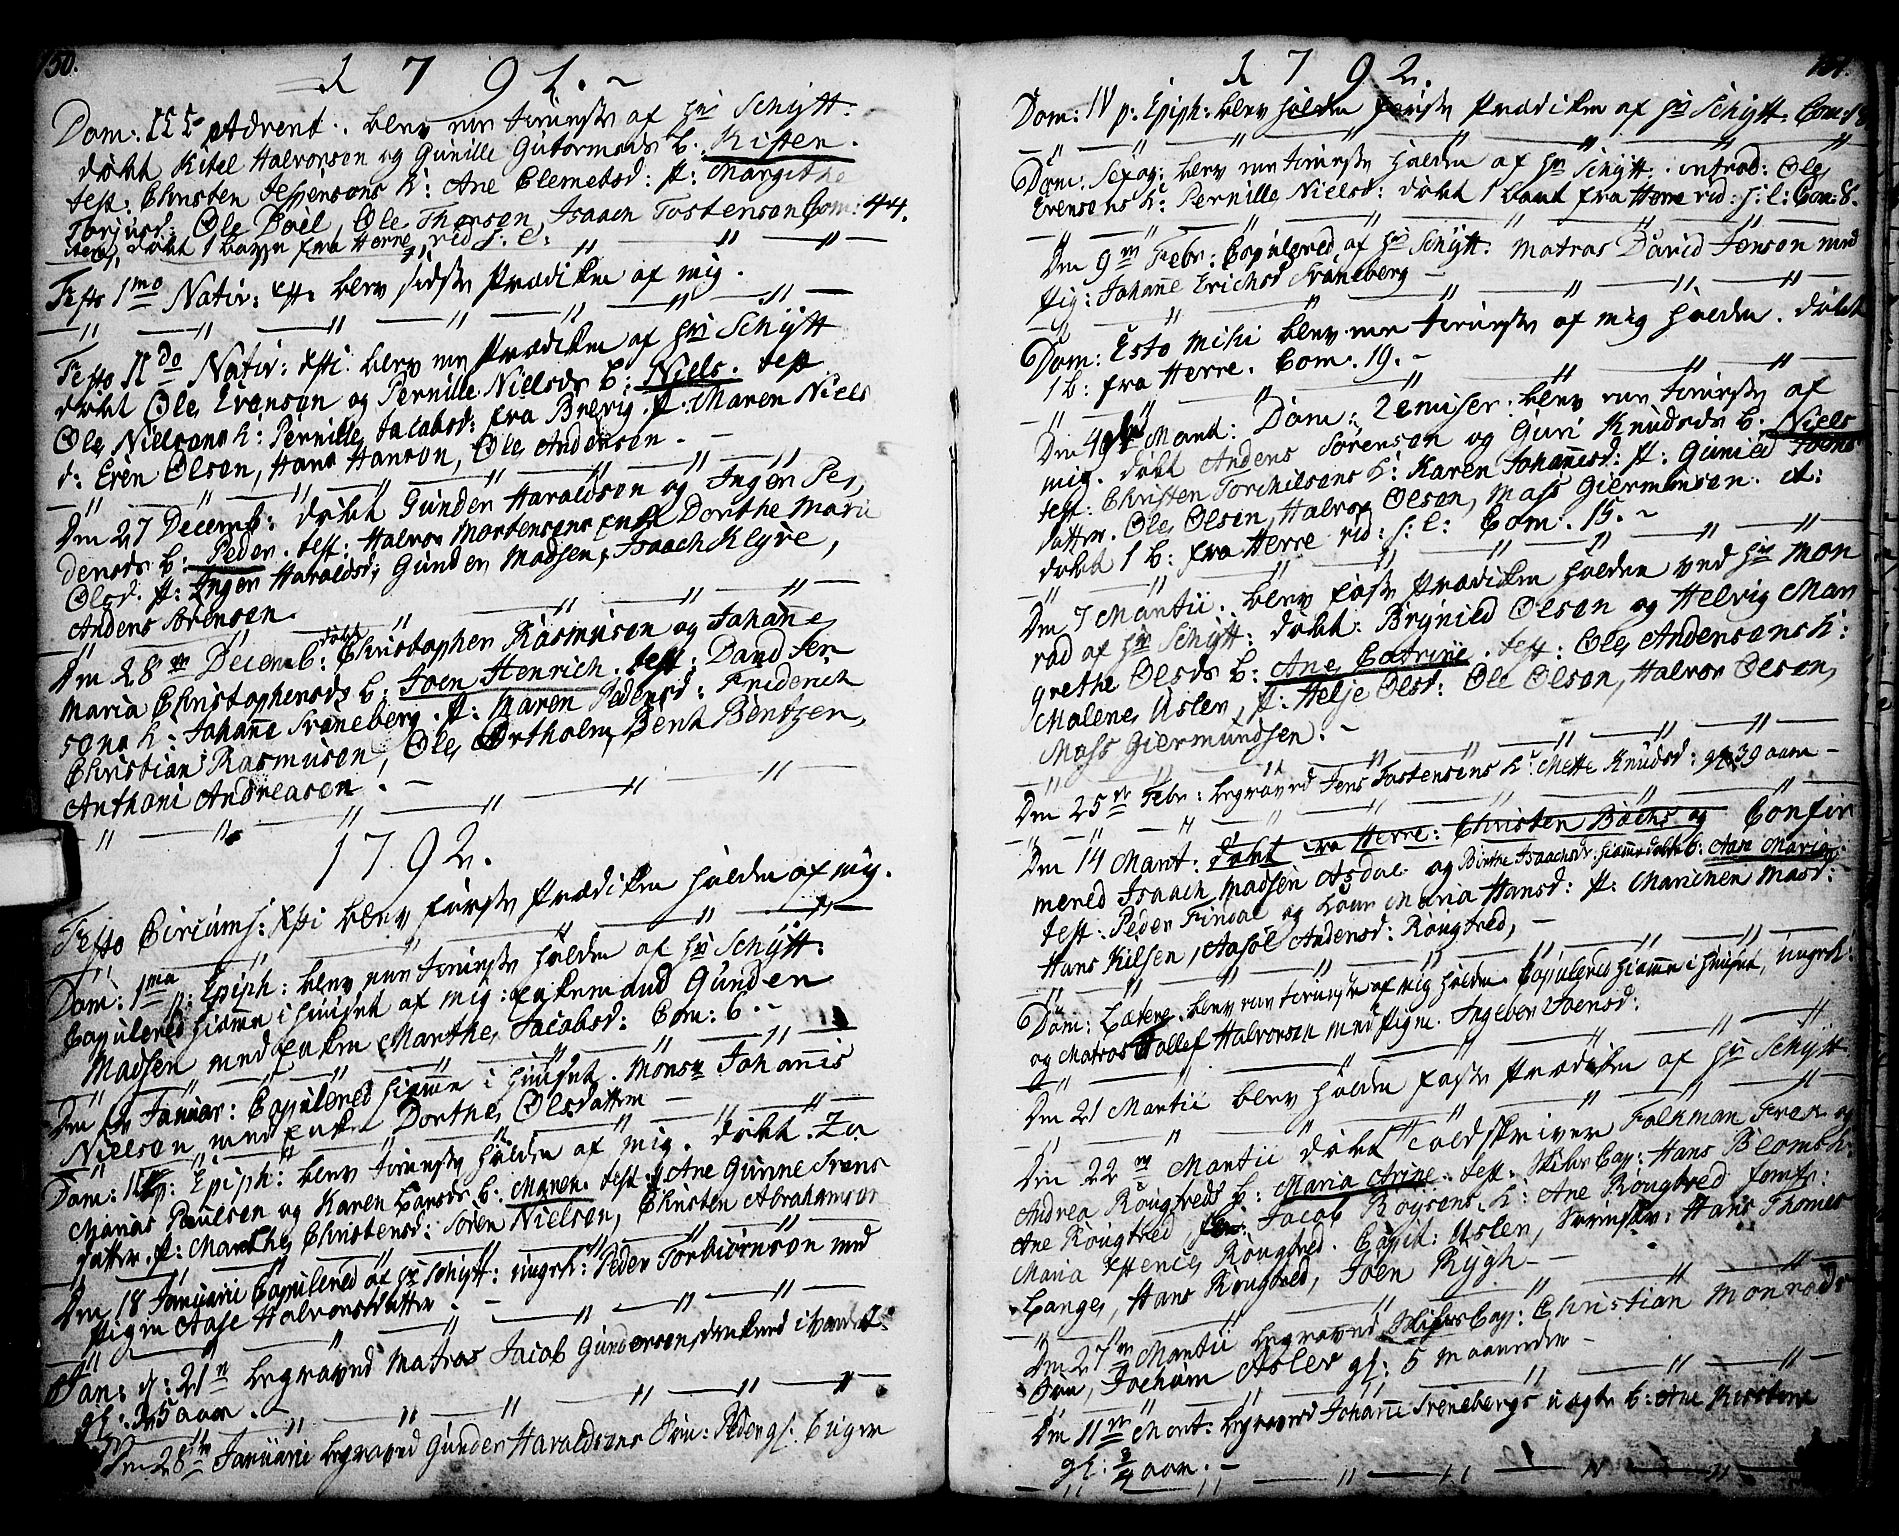 150.
1 7 9 1.
Dom: III Advent. blev  af Hr Schytt.
døbt Kitel Halvorsen og Gunille Gutormsds b. Kisten.
test. Christen Jespersens k: Ane Clemetsd: p. Margithe
Torjusd: Ole Doel, Ole Thorsen, Isaach Tostensen Com: 44.
døbt 1 barn fra Herre
Festo 1mo Nativ: Xsti blev sidste Prædiken af mig.
Festo IIdo Nativ: Xsti blev Prædiken af Hr Schytt
døbt Ole Evensen og Pernille Nielsds b: Niels. test
Ole Nielsens k: Pernille Jacobsd: fra Brevig. p. Maren Niels
d: Even Olsen, Hans Hansen, Ole Andersen.
Den 27 Decemb: døbt Gunder Haraldsen og Inger Pe
dersds b: Peder. test: Halvor Mortensens Dorthe Maria
Olsd. p: Inger Haraldsd: Gunder Madsen, Isaach Klyve,
Anders Sørensen.
Den 28de Decemb: døbt Christopher Rasmusen og Johanne
Maria Christophersds b: Joen Henrich. test: David Jen
sens k: Johanne Svaneberg. p: Maren Pedersd: Friderich
Christian Rasmusen, Ole Ortholm, Bent Bentzen,
Anthoni Andreasen.
1792.
Festo Circumc: Xsti blev første Prædiken holden af mig.
Dom: 1ma p: Epiph: blev holden af Hr Schytt.
Copulered hiemme i Huuset af mig: Enkemand Gunder
Madsen med Enken Marthe Jacobsd: Com: 6.
Den 12 Januar: Copulered hiemme i Huuset. Monsr Johannis
Nielsen med Enken Dorthe Olsdatter
Dom: II p: Epiph: blev holden af mig. døbt. Za
Marias Paulsen og Karen Larsds b: Maren. test: Ane Gunne Svens
datter. p: Marthe Christensd: Søren Nielsen, Christen Abrahamsen
Den 18 Januarii Copulered af Hr Schytt: ungk: Peder Torbiørnsen med
Pigen Aase Halvorsdatter.
Jan: d: 21de begraved Matros Jacob Gundersen, druknet i Vandet.
gl: 25 aar.
Den 28de Januarii begraved Gunder Haraldsens Søn: Peder gl. 6 uger
151.
1 7 9 2.
Dom: IV p: Epiph: blev holden første Prædiken af Hr Schytt. Com: 18
Dom. Sexag: blev holden af Hr Schytt. introd: Ole
Evensens k: Pernille Nielsd: døbt 1 barn fra Herre Com: 8.
Den 9de Febr: Copulered af Hr Schytt. Matros David Jensen med
Pig: Johane Erichsd Svaneberg
Dom: Esto mihi blev af mig holden. døbt
1 b: fra Herre. Com. 19.
Den 4de Mart: Dom: Reminiser: blev af
mig. døbt Anders Sørensen og Guri Knudsds b. Niels
test: Christen Torchilsens k: Karen Johannesd: p: Gunild Joens
datter. Ole Olsen, Halvor Olsen, Mass Giermunsen. it:
døbt 1 b: fra Herre Com: 15.
Den 7 Martii. blev faste Prædiken holden ved Hr Mon
rad af Hr Schytt: døbt. Brynild Olsen og Helvig Mar
grethe Olsds b: Ane Catrine. test: Ole Andersens k:
Malene Uslev, p: Helje Olsd: Ole Olsen, Halvor Olsen,
Mass Giermundsen.
Den 25de Febr: begraved Jens Tostensens k: Mette Knudsd: gl. 39 aar
Den 14 Mart: døbt fra Herre: Christen Bachs og Confir
mered Isaach Madsen Asdal og Birthe Isaachsds: hiemmedøbt b: Aase Maria
test: Peder Findal og Maria Hansd: p: Marichen Masd:
Hans Kilsen, Aasol Andersd: Rougtved,
Dom: Lætere blev af mig holden. Copulered hiemme i Huuset, ungk:
og Matros Tollef Halvorsen med Pigen. Ingebor Joensd:
Den 21 Martii blev holden faste Prædiken af Hr Schytt
Den 22de Martii døbt Toldskriver Falkman og
Andrea Rougtveds b: Maria Arine. test: Skibs Cap: Hans Bloms k:
Ane Rougtved Jacob Boysens k: Ane Rougtved Jomfr:
Maria Rougtved. Capit: Uslev, Hans Thomes
Lange, Hans Rougtved, Joen Rygh
Den 27de Martii begraved Skibs Cap: Christian Monrads
Søn, Jochum Aslev gl: 5 maaneder
Den 11de Mart: begraved Johanne Svenebergs uægte b: Ane Kirstine
gl: 3/4 aar.